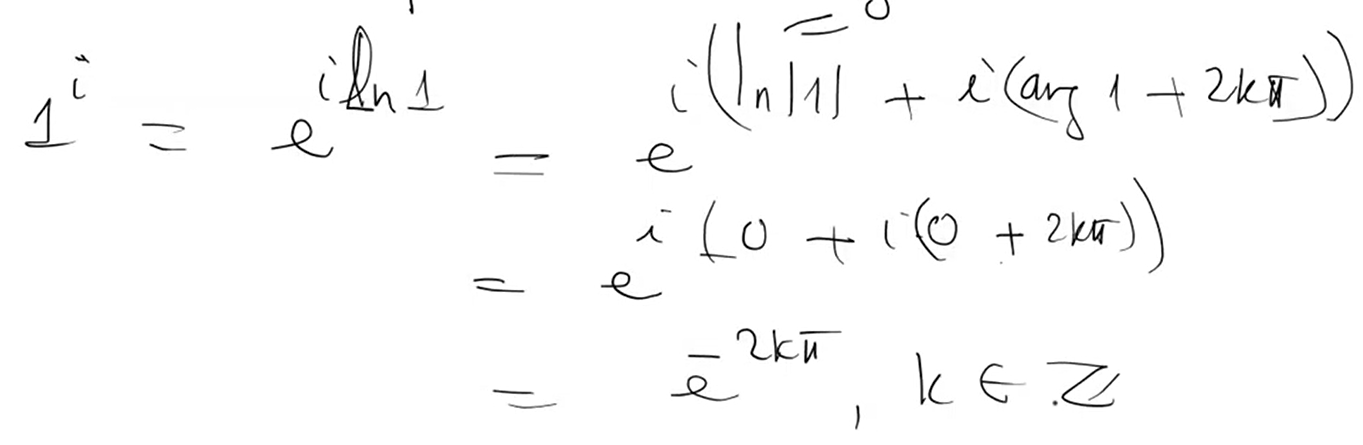 = 0
1^i = e^{i ln 1} = e^{i(ln|1| + i(arg 1 + 2kπ))}
= e^{i(0 + i(0 + 2kπ))}
= e^{-2kπ}, k ∈ ℤ